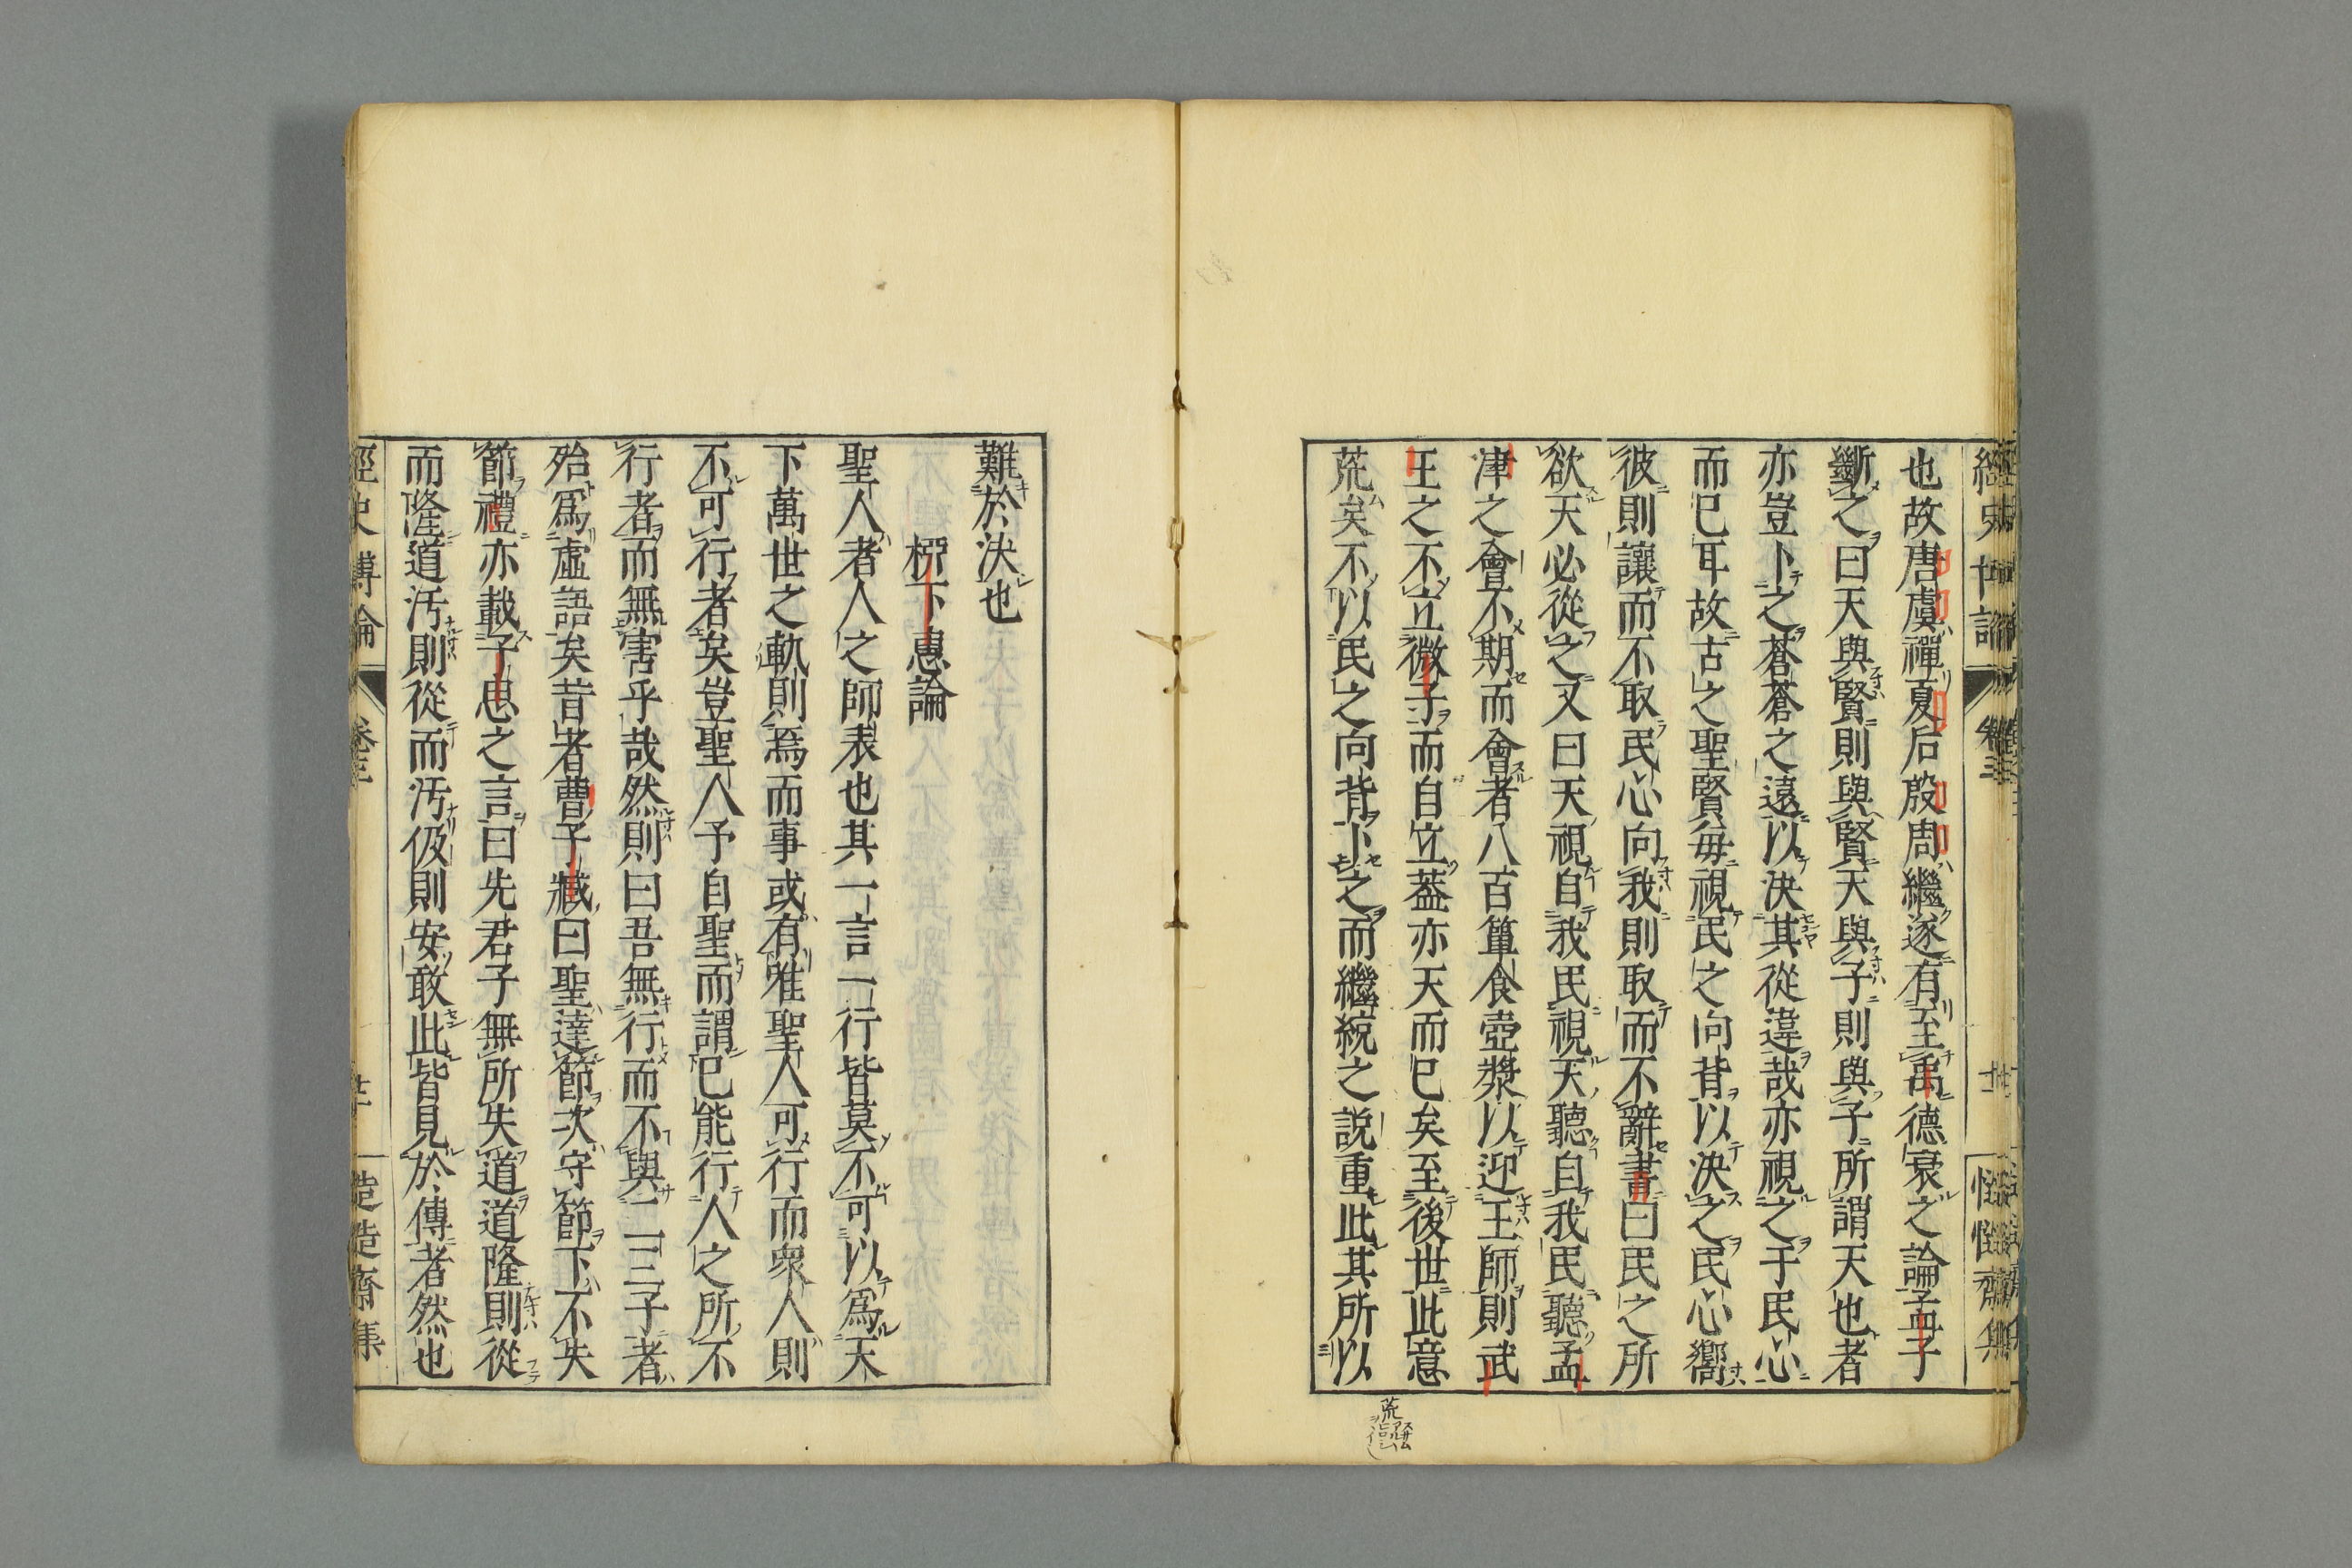 經史博論
卷三
慥慥齋集
也故唐虞禪夏后殷周繼遂有至禹德衰之論孟子
斷之曰天與賢則與賢天與子則與子所謂天也者
亦豈卜之蒼蒼之遠以決其從違哉亦視之于民心
而已耳故古之聖賢每視民之向背以決之民心嚮
彼則讓而不取民心向我則取而不辭書曰民之所
欲天必從之又曰天視自我民視天聽自我民聽孟
津之會不期而會者八百簞食壺漿以迎王師則武
王之不立微子而自立蓋亦天而已矣至後世此意
荒矣不以民之向背卜之而繼統之説重此其所以
荒
難於決也
桺下惠論
聖人者人之師表也其一言一行皆莫不可以爲天
下萬世之軌則焉而事或有唯聖人可行而衆人則
不可行者矣豈聖人予自聖而謂已能行人之所不
行者而無害乎哉然則曰吾無行而不與二三子者
殆爲虛語矣昔者曹子臧曰聖達節次守節下不失
節禮亦載子思之言曰先君子無所失道道隆則從
而隆道汚則從而汚伋則安敢此皆見於傳者然也
經史博論
卷三
慥慥齋集